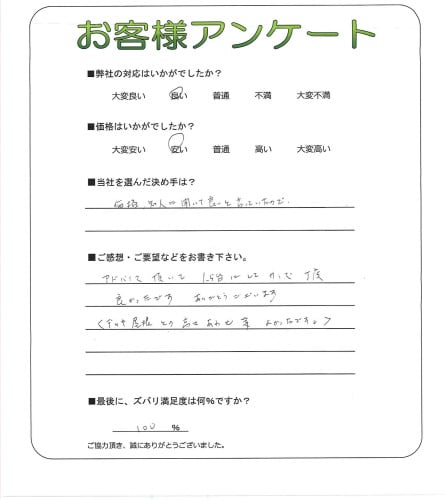 お客様アンケート
■弊社の対応はいかがでしたか？
大変良い 良い 普通 不満 大変不満
■価格はいかがでしたか？
大変安い 安い 普通 高い 大変高い
■当社を選んだ決め手は？
価格、知人に聞いて良いと言っていたので、
■ご感想・ご要望などをお書き下さい。
アドバイス頂いて 1.5台にして
良かったです ありがとうございます
屋根 高さ よかったです。
■最後に、ズバリ満足度は何％ですか？
100 ％
ご協力頂き、誠にありがとうございました。